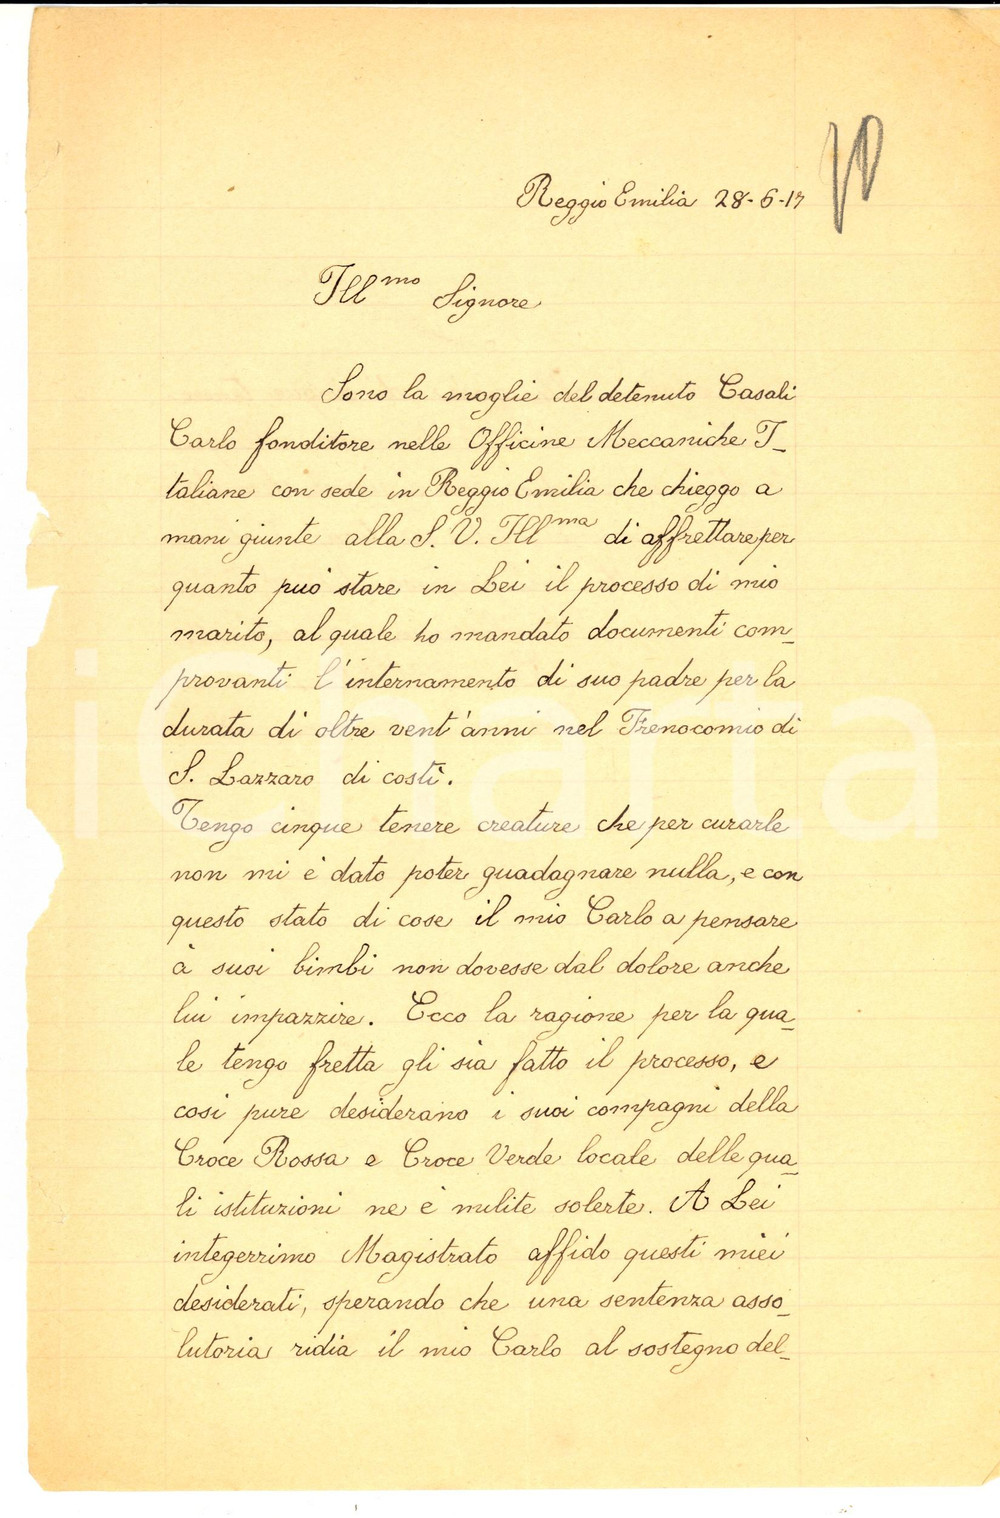 Reggio Emilia 28-6-17
Ill^mo Signore
Sono la moglie del detenuto Casali
Carlo fonditore nelle Officine Meccaniche I_
taliane con sede in Reggio Emilia che chieggo a
mani giunte alla S. V. Ill^ma di affrettare per
quanto può stare in Lei il processo di mio
marito, al quale ho mandato documenti com_
provanti l'internamento di suo padre per la
durata di oltre vent'anni nel Frenocomio di
S. Lazzaro di costì.
Tengo cinque tenere creature che per curarle
non mi è dato poter guadagnare nulla, e con
questo stato di cose il mio Carlo a pensare
à suoi bimbi non dovesse dal dolore anche
lui impazzire. Ecco la ragione per la qua_
le tengo fretta gli sia fatto il processo, e
così pure desiderano i suoi compagni della
Croce Rossa e Croce Verde locale delle qua_
li istituzioni ne è milite solerte. A Lei
integerrimo Magistrato affido questi miei
desiderati, sperando che una sentenza asso_
lutoria ridia il mio Carlo al sostegno del_
iCharta